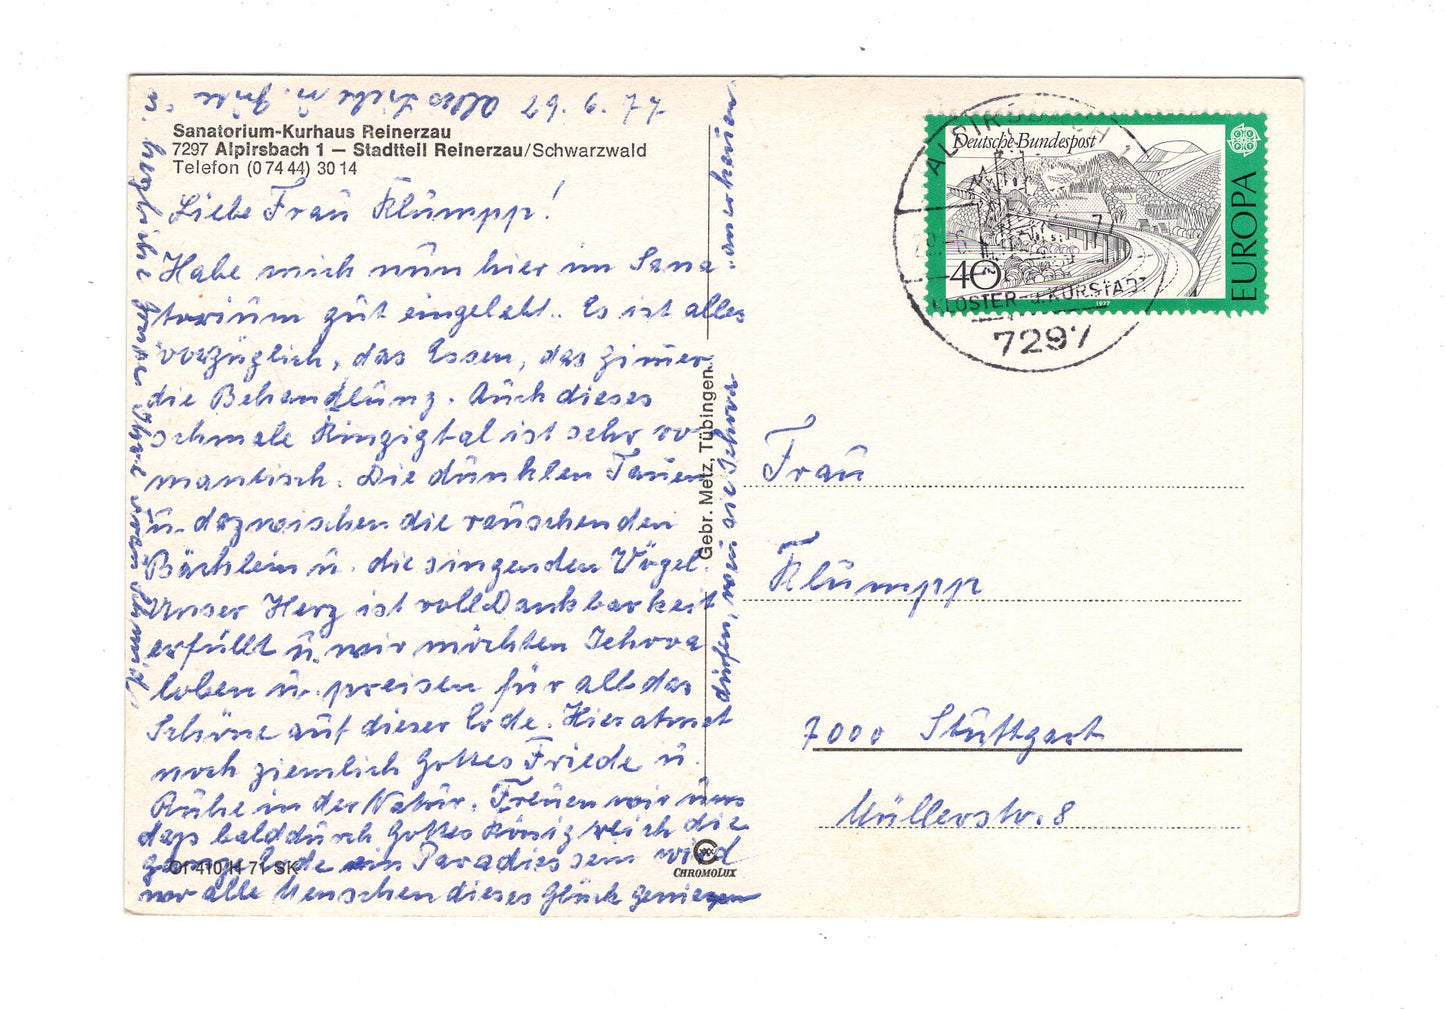 29. 6. 77
Sanatorium-Kurhaus Reinerzau
7297 Alpirsbach 1 — Stadtteil Reinerzau/Schwarzwald
Telefon (0 74 44) 30 14
Liebe Frau Klumpp!
Habe mich nun hier im Sana
torium gut eingelebt. Es ist alles
vorzüglich, das Essen, das Zimer
die Behandlung. Auch dieses
schmale Kinzigtal ist sehr ro-
mantisch. Die dunklen Tanen
u. dazwischen die rauschenden
Bächlein u. die singenden Vögel.
Unser Herz ist voll Dankbarkeit
erfüllt u. wir möchten Jehova
loben u. preisen für all das
Schöne auf dieser Erde. Hier atmet
noch ziemlich Gottes Friede u.
Ruhe in der Natur. Freuen wir uns
daß bald durch Gottes Königreich die
ganze Erde ein Paradies sein wird
wo alle Menschen dieses Glück geniesen
dürfen, wen sie Jehova
anerkenen
Alles Liebe u. Gute
u. herzliche Grüße Ihre
Gebr. Metz, Tübingen
C1 410 H 71 SK
CHROMOLUX
Deutsche Bundespost
EUROPA
40
1977
ALPIRSBACH 1
KLOSTER- u. KURSTADT
7297
Frau
Klumpp
7000 Stuttgart
Müllerstr. 8